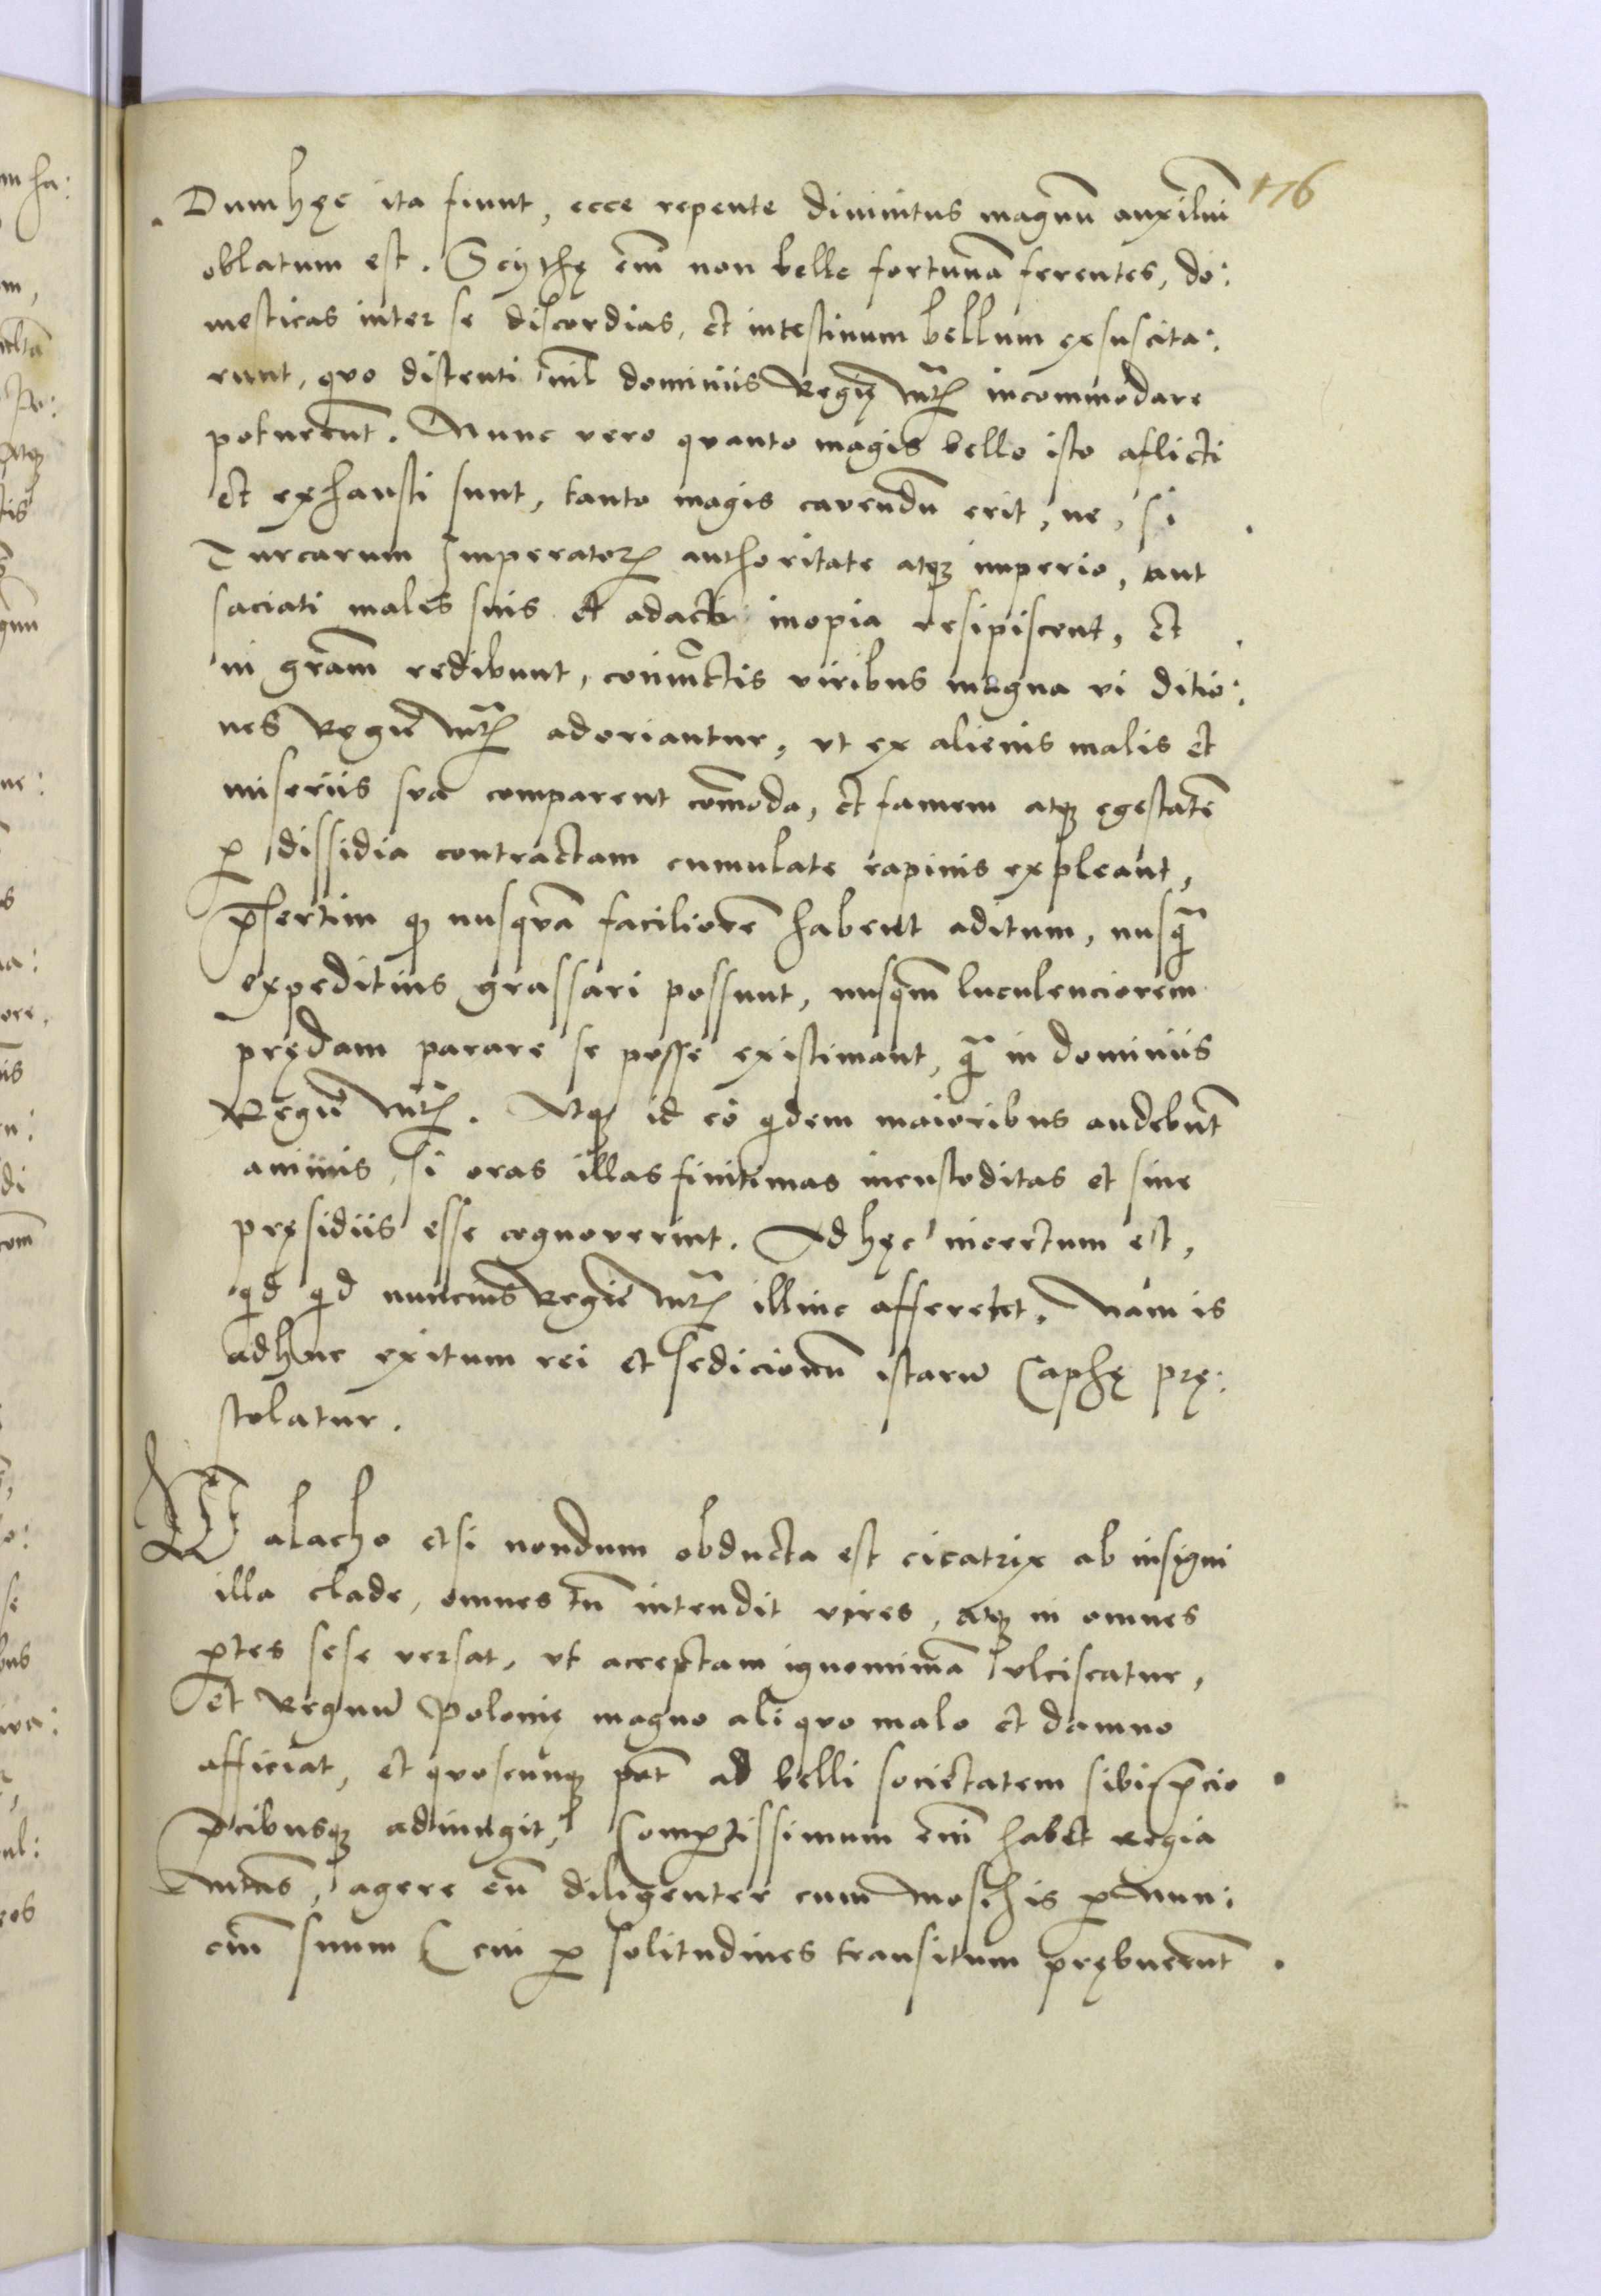 176
Dum hęc ita fiunt, ecce repente divinitus magnū auxiliū
oblatum est. Scythę em̄ non belle fortunā ferentes, do:
mesticas inter se discordias, et intestinum bellum exsuscita:
runt, quo distenti nil dominiis Regię mtis incommodare
potuerūt. Nunc vero quanto magis bello isto aflicti
et exhausti sunt, tanto magis cavendū erit, ne, si
Turcarum Imperatoris authoritate atq; imperio, aut
saciati malis suis et adacti inopia resipiscent, et
in gram̄ redibunt, coniūctis viribus magna vi ditio:
nes Regię mtis adoriantur, vt ex alienis malis et
miseriis sua comparent com̄oda, et famem atq; egestatē
p dissidia contractam cumulate rapinis expleant,
p̄sertim q; nusquā faciliorē habent aditum, nusq̄
expeditius grassari possunt, nusqm̄ luculenciorem
prędam parare se posse existimant, q̄ in dominiis
Regię mtis. Atq; id eo qdem maioribus audebūt
animis, si oras illas finitimas incustoditas et sine
pręsidiis esse cognoverint. Ad hęc incertum est,
qd qd nuncius Regię mtis illinc afferet. Nam is
adhuc exitum rei et sedicionū istarū Caphę prę:
stolatur.
Walacho etsi nondum obducta est cicatrix ab insigni
illa clade, omnes tn̄ intendit vires, atq; in omnes
ptes sese versat, vt acceptam ignominiā vlciscatur,
et Regnū Polonię magno aliquo malo et damno
afficiat, et quoscunq; pōt ad belli societatem sibi p̄cio
p̄cibusq; adiungit, Comptissimum em̄ habet Regia
mtas, agere eū diligenter cum Moschis p nun:
cium̄ suum (cui p solitudines transitum prębuerūt